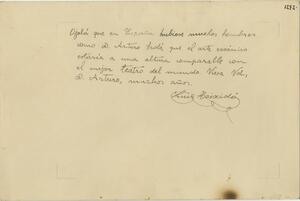 1292
Ojalá que en España hubiese muchos hombres
como D. Arturo Sedó que el arte escénico
estaría a una altura comparable con
el mejor teatro del mundo Viva Vd,
D. Arturo, muchos años.
Luis